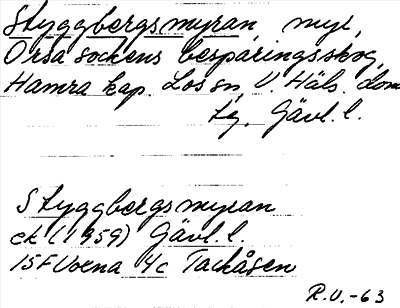 Styggbergsmyran, myr,
Orsa sockens besparingsskog,
Hamra kap. Los sn, V. Häls. doms
tg, Gävl. l.
Styggbergsmyran
ek (1959) Gävl. l.
15F Voxna 4c Tackåsen
R.U.-63